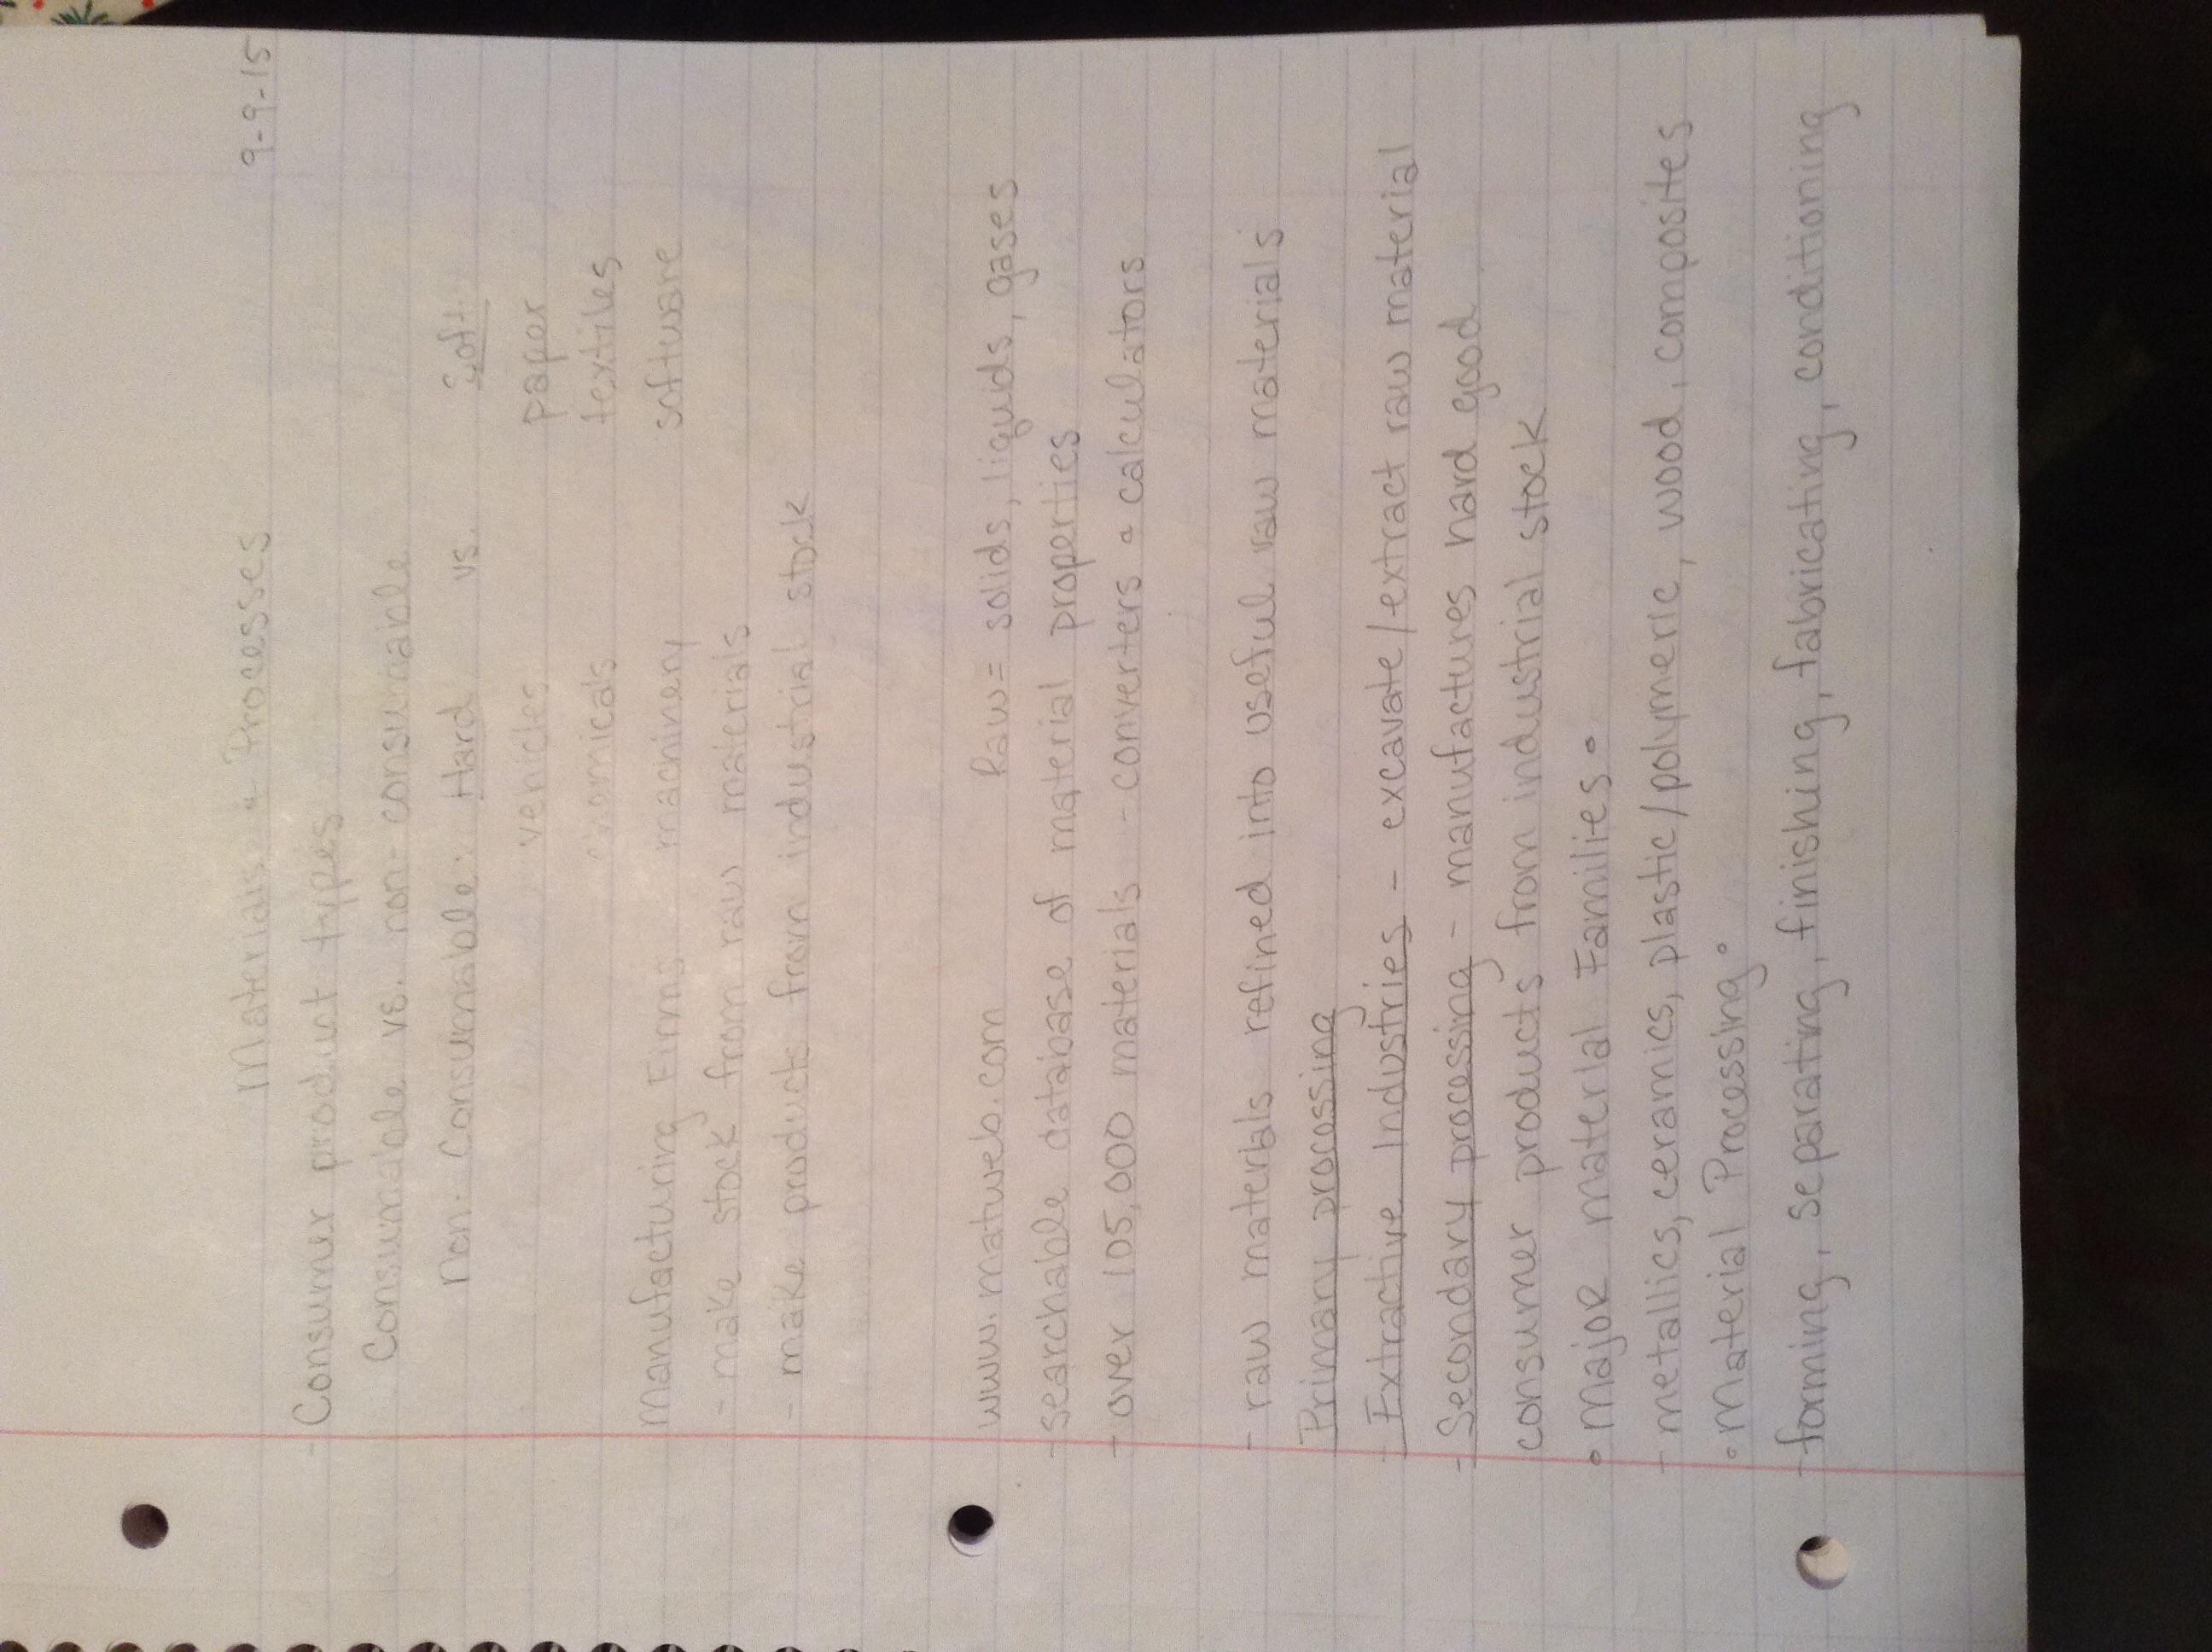 Materials & Processes 9-9-15
- Consumer product types
Consumable vs. non-consumable
Non-Consumable: Hard vs. Soft
vehicles paper
chemicals textiles
Manufacturing Firms machinery software
- make stock from raw materials
- make products from industrial stock
www.matweb.com Raw= solids, liquids, gases
- searchable database of material properties
- over 105,000 materials - converters & calculators
- raw materials refined into useful raw materials
Primary processing
- Extractive Industries - excavate/extract raw material
- Secondary processing - manufactures hard good
consumer products from industrial stock
• Major material Families •
- metallics, ceramics, plastic/polymeric, wood, composites
• Material Processing •
- forming, separating, finishing, fabricating, conditioning